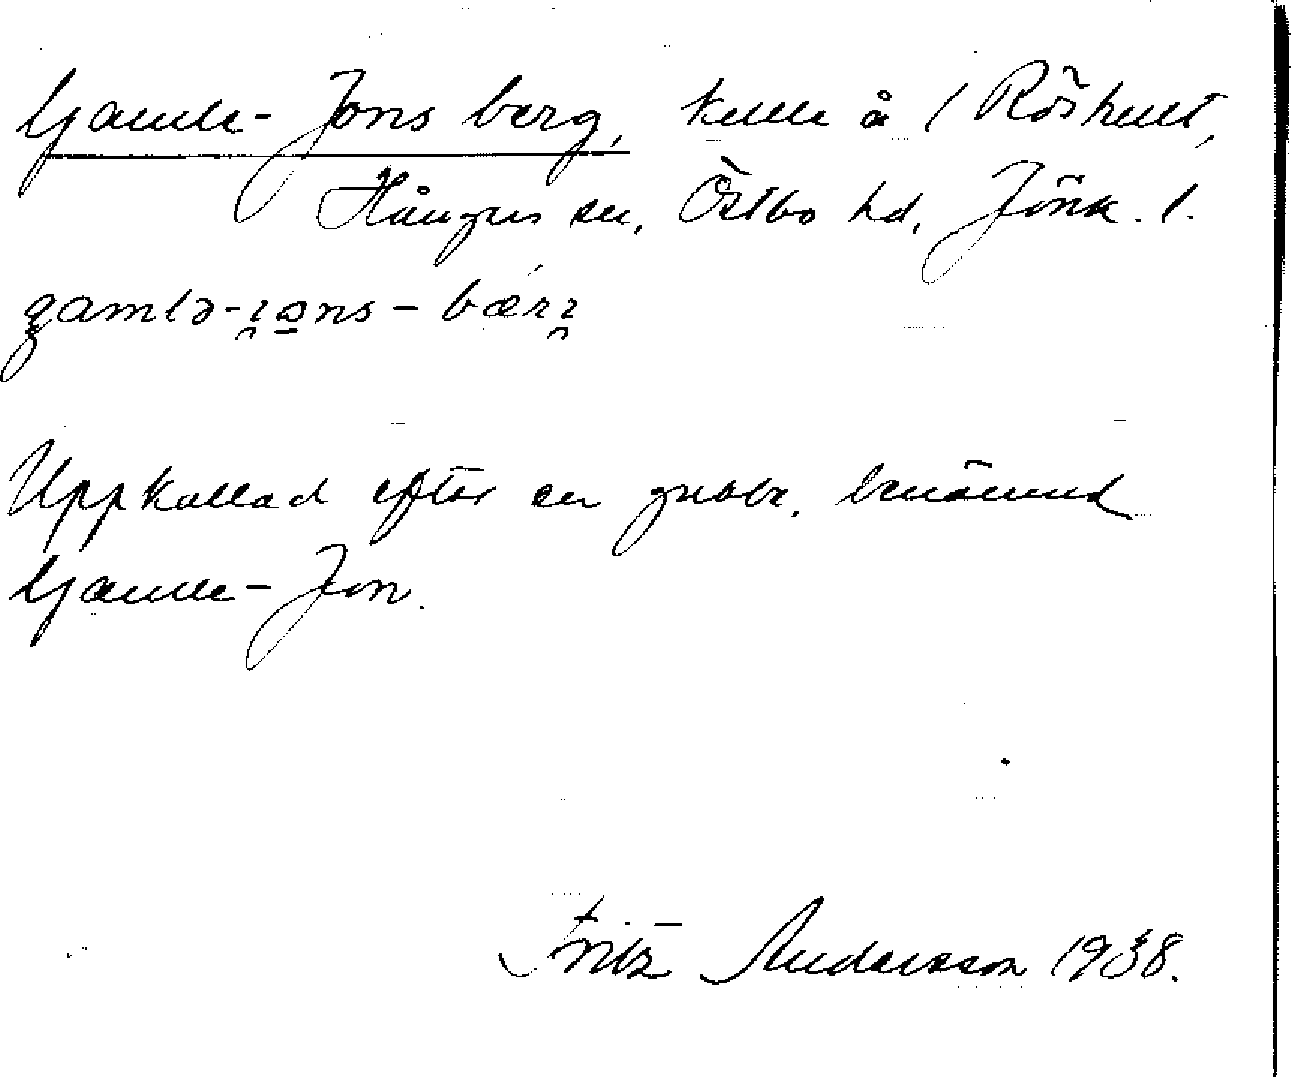 Gamle-Jons berg, kulle å / Röshult,
Hånger sn, Östbo hd, Jönk. l.
gamlə-ɪ̯o̲ns-bærɪ̯
Uppkallad efter en gubbe, benämnd
Gamle-Jon.
Fritz Andersson 1938.